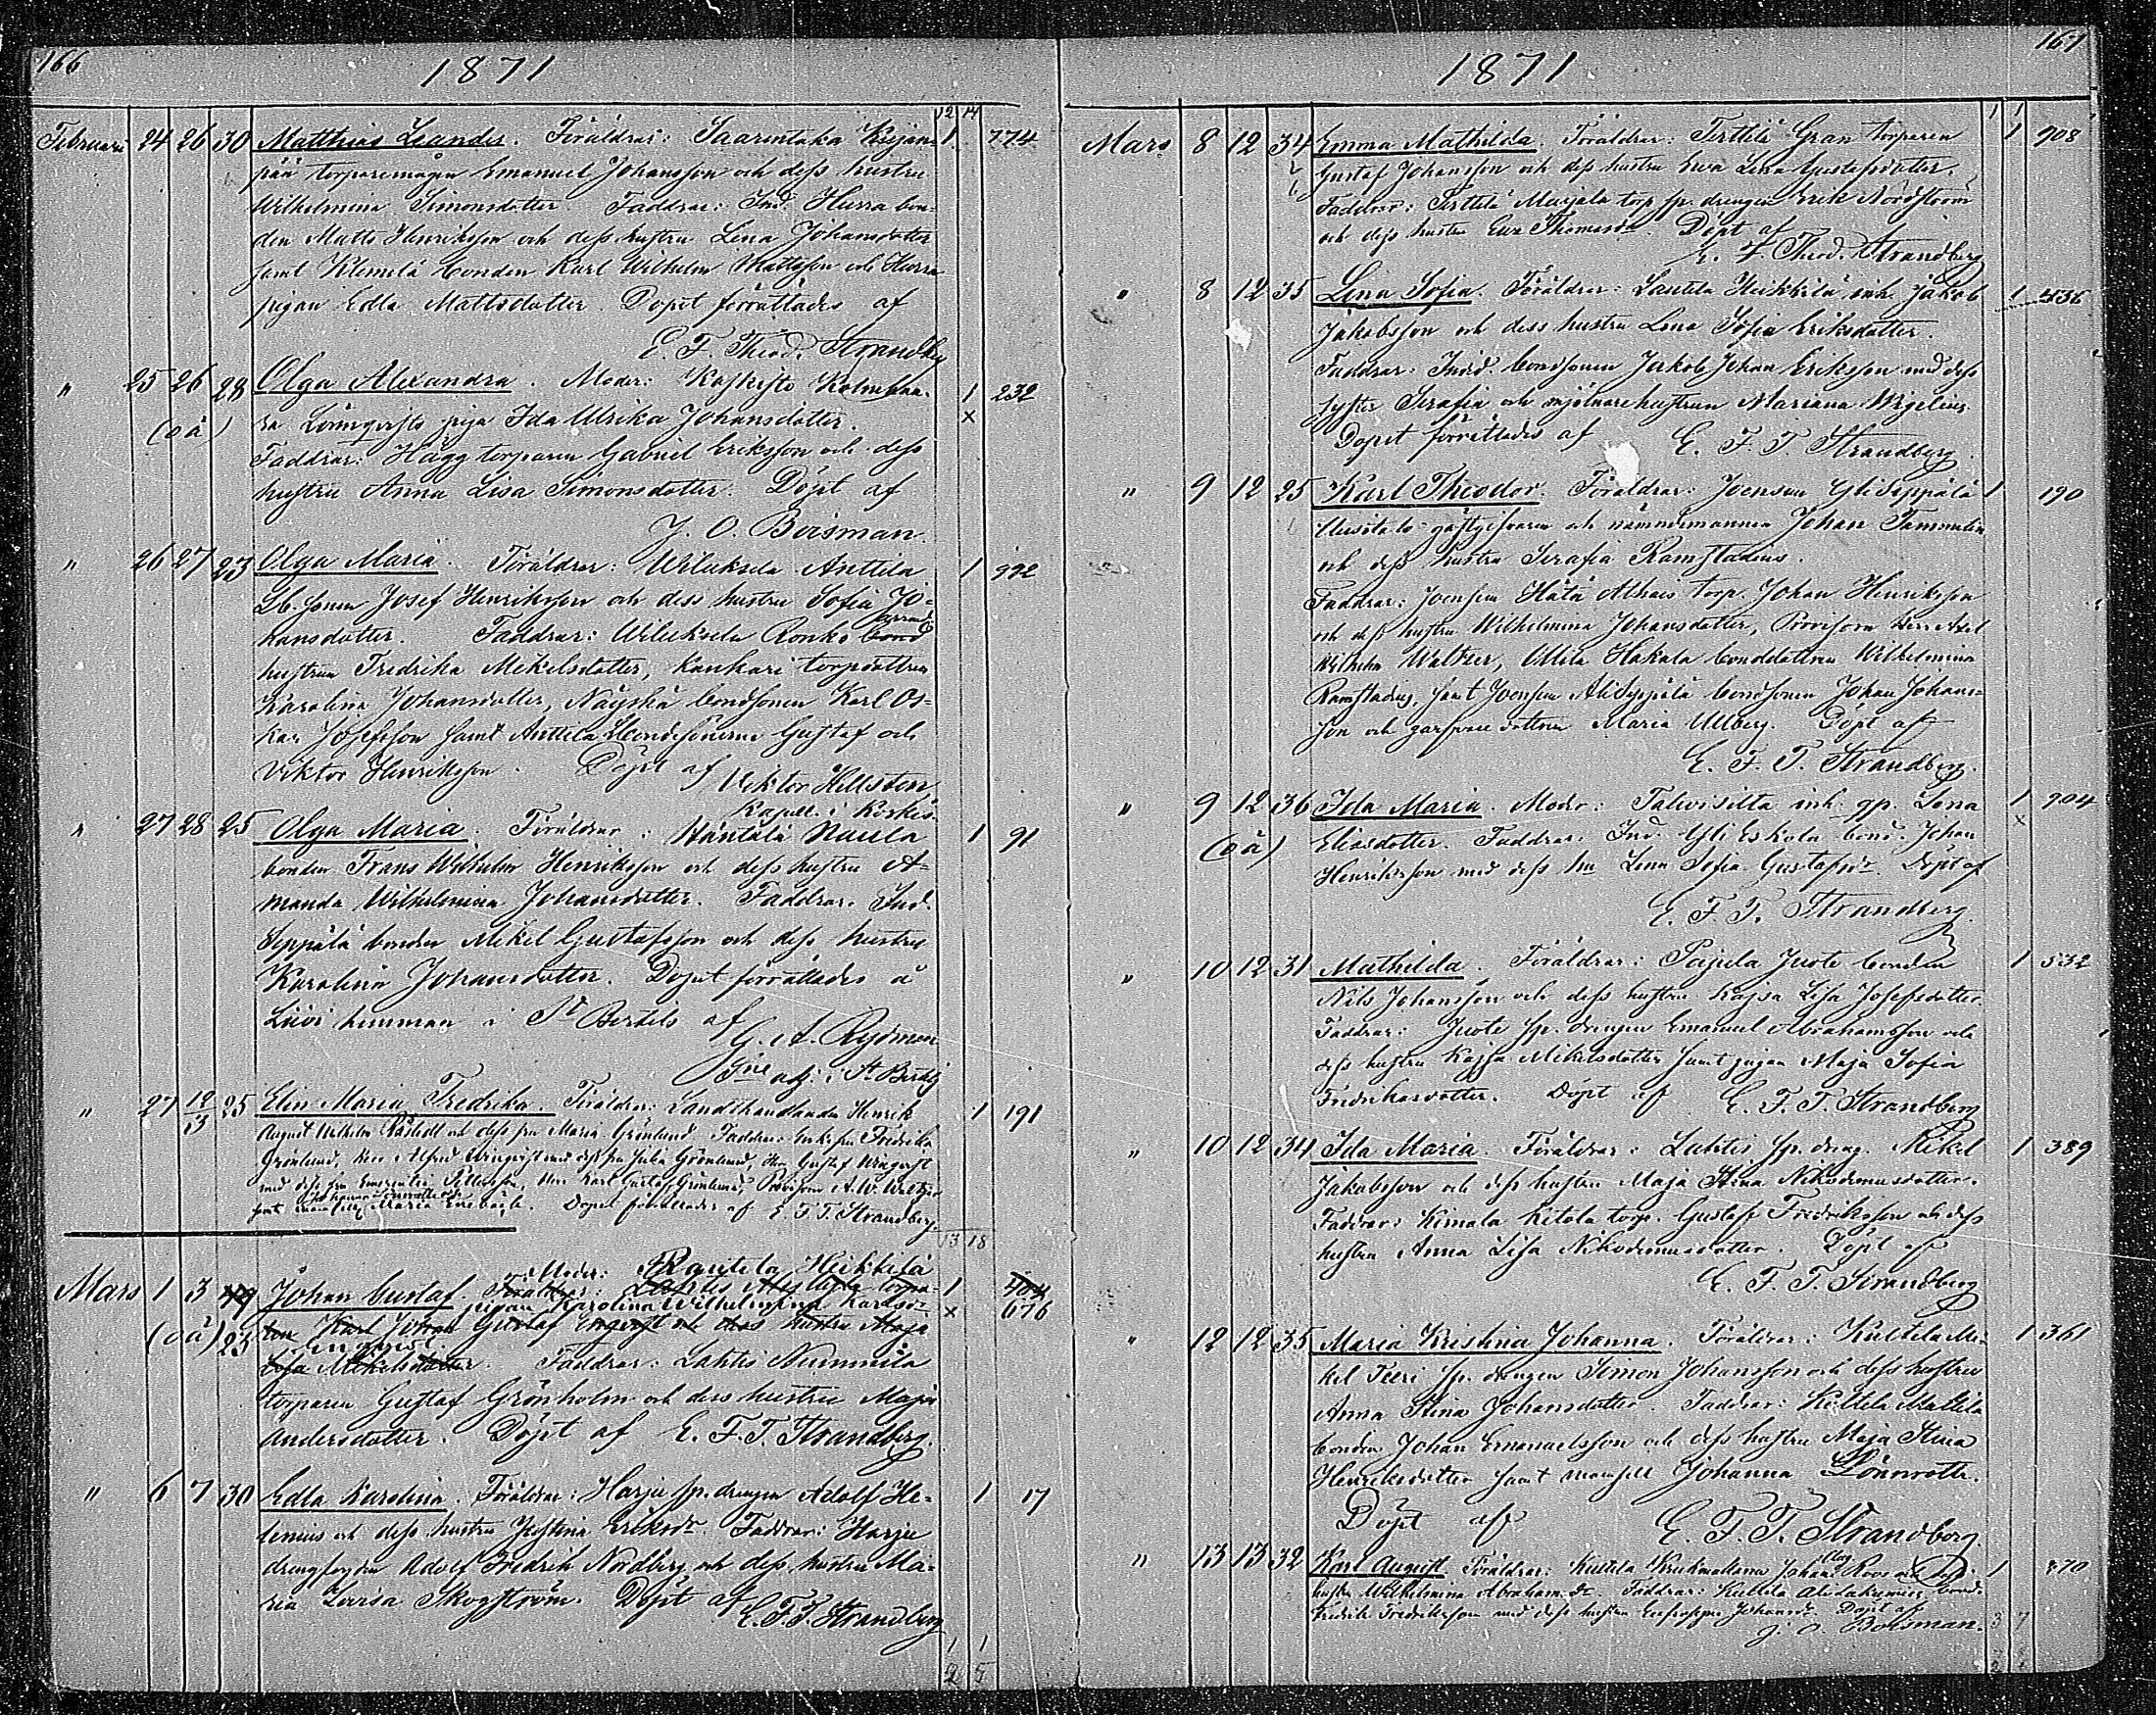 166
1871
12 14
Februari 24 26 30 Matthias Leander. Föräldrar: Saarentaka Kujan- 1 774
pää torparemågen Emanuel Johansson och dess hustru
Wilhelmina Simonsdotter. Faddrar: Ind. Hurra bon-
den Matts Henriksson och dess hustru Lena Johansdotter
samt Klemelä bonden Karl Wilhelm Mattsson och Hurra
pigan Edla Mattsdotter. Dopet förrättades af
E. F. Theod. Strandberg
" 25 26 28 Olga Alexandra. Moder: Koskisto Kolmhaa- 1 232
(oä) ra Lönnqvists piga Ida Ulrika Johansdotter. x
Faddrar: Hägg torparen Gabriel Eriksson och dess
hustru Anna Lisa Simonsdotter. Döpt af
J. O. Boisman.
" 26 27 23 Olga Maria. Föräldrar: Wiluksela Anttila 1 992
Lb. sonen Josef Henriksson och dess hustru Sofia Jo-
hansdotter. Faddrar: Wiluksela Ronko bond
hustrun Fredrika Mikelsdotter, Kankari torpdottren
Karolina Johansdotter, Näyskä bondsonen Karl Os-
kar Josefsson samt Anttila Lbondesönerne Gustaf och
Viktor Henriksson. Döpt af Viktor Hellsten
Kapell. i Koskis.
" 27 28 25 Olga Maria. Föräldrar: Häntälä Naula 1 91
bonden Frans Wilhelm Henriksson och dess hustru A-
manda Wilhelmina Johansdotter. Faddrar. Ind.
Seppälä bonden Mikel Gustafsson och dess hustru
Karolina Johansdotter. Dopet förrättades å
Liivi hemman i St Bertils af
G. A. Rydman
Sne adj. i St Bertils
" 27 12/3 25 Elin Maria Fredrika. Föräldrar: Landthandlanden Henrik 1 191
August Wilhelm och dess fru Maria Grönlund. Faddrar: Enke fru Fredrika
Grönlund, Herr Alfred Winqvist med dess fru Julia Grönlund, Herr Gustaf Winqvist
med dess fru Emerentia Pettersson, Herr Karl Gustaf Grönlund, Provisorn A. W. Waltzer
Johanna Lönnroth och
samt mamsell Maria Enebäck. Dopet förrättades af E. F. T. Strandberg.
13 18
Moder: Rautila Heikkilä
Mars 1 3 Johan Gustaf. Föräldrar: Lahtis torpa- 1 404
pigan Karolina Wilhelmina Karlsdr x 676
(oä) 23 ren Karl Johan Gustaf Engqvist och dess hustru Maja
Engqvist.
Lisa Mikelsdotter. Faddrar: Lahtis Nummila
torparen Gustaf Grönholm och dess hustru Maja
Andersdotter. Döpt af E. F. T. Strandberg.
" 6 7 30 Edla Karolina. Föräldrar: Harju sp. drengen Adolf He- 1 17
lenius och dess hustru Justina Eriksdr. Faddrar: Harju
drengfogden Adolf Fredrik Nordberg och dess hustru Ma-
ria Lovisa Skogström. Döpt af
E. F. T. Strandberg
1 1
2 5
167
1871
1 1
Mars 8 12 34 Emma Mathilda. Föräldrar: Terttilä Gran torparen 1 908
Gustaf Johansson och dess hustru Ewa Lena Gustafsdotter.
Faddrar: Terttilä Maijala torp sp. drengen Erik Nordström
och dess hustru Ewa Thomasdr. Döpt af
E. F. Theod. Strandberg
" 8 12 35 Lina Sofia. Föräldrar: Lautela Heikkilä inh. Jakob 1 436
Jakobsson och dess hustru Lena Sofia Eriksdotter.
Faddrar: Inid. bondsonen Jakob Johan Eriksson med dess
syster Serafia och mjölnarehustrun Mariana Wigelius.
Dopet förrättades af E. F. T. Strandberg.
" 9 12 25 Karl Theodor. Föräldrar: Joensuu YliSeppälä 1 190
Uusitalo gästgifvaren och nämndemannen Johan Tammelin
och dess hustru Serafia Ramstadius.
Faddrar: Joensuu Hätä Athais torp. Johan Henriksson
och dess hustru Wilhelmina Johansdotter, Provisorn Herr Axel
Wilhelm Waltzer, Ollila Hakala bonddottren Wilhelmina
Ramstadius, samt Joensuu AliSeppälä bondsonen Johan Johans-
son och garfvare dottren Maria Ullberg. Döpt af
E. F. T. Strandberg.
" 9 12 36 Ida Maria. Moder: Talvisilta inh. qp. Lena 1 904
(oä) Eliasdotter. Faddrar. Ind. Yli Eskola bond. Johan x
Henriksson med dess hu Lena Sofia Gustafsdr. Döpt af
E. F. T. Strandberg.
" 10 12 31 Mathilda. Föräldrar: Pajula Juote bonden 1 532
Nils Johansson och dess hustru Kajsa Lisa Josefsdotter.
Faddrar: Juote sp. drengen Emanuel Abrahamsson och
dess hustru Kajsa Mikelsdotter samt pigan Maja Sofia
Fredriksdotter. Döpt af E. F. T. Strandberg
" 10 12 34 Ida Maria. Föräldrar: Lahtis sp. dreng. Mikel 1 389
Jakobsson och dess hustru Maja Stina Nikodemusdotter.
Faddrar: Kimala Kitola torp. Gustaf Fredriksson och dess
hustru Anna Lisa Nikodemusdotter. Döpt af
E. F. T. Strandberg
" 12 12 35 Maria Kristina Johanna. Föräldrar: Kuttila Mi- 1 361
kel Teeri sp. drengen Simon Johansson och dess hustru
Anna Stina Johansdotter. Faddrar: Kuttila Mattila
bonden Johan Emanuelsson och dess hustru Maja Stina
Henriksdotter samt mamsell Johanna Lönnroth.
Döpt af E. F. T. Strandberg.
" 13 13 32 Karl August. Föräldrar: Kuttila Krukmakaren Johan Roos och dess 1 370
hustru Wilhelmina Abrahamsdr. Faddrar: Kuttila bond.
Fredrik Fredriksson med dess hustru Eufrosyne Johansdr. Döpt af
J. O. Boisman. 3 7